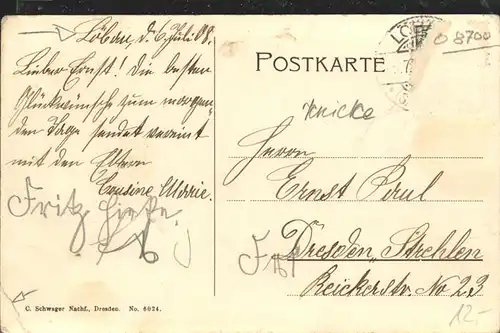 Löbau, d. 6. Juli 08.
Lieber Ernst! Die besten
Glückwünsche zum morgen-
den Tage sendet vereint
mit den Eltern
Cousine Marie.
Fritz
POSTKARTE
D 8700
Knicke
Herrn
Ernst Paul
Dresden-Strehlen
Reickerstr. No 23
12,-
C. Schwager Nachf., Dresden. No. 6024.